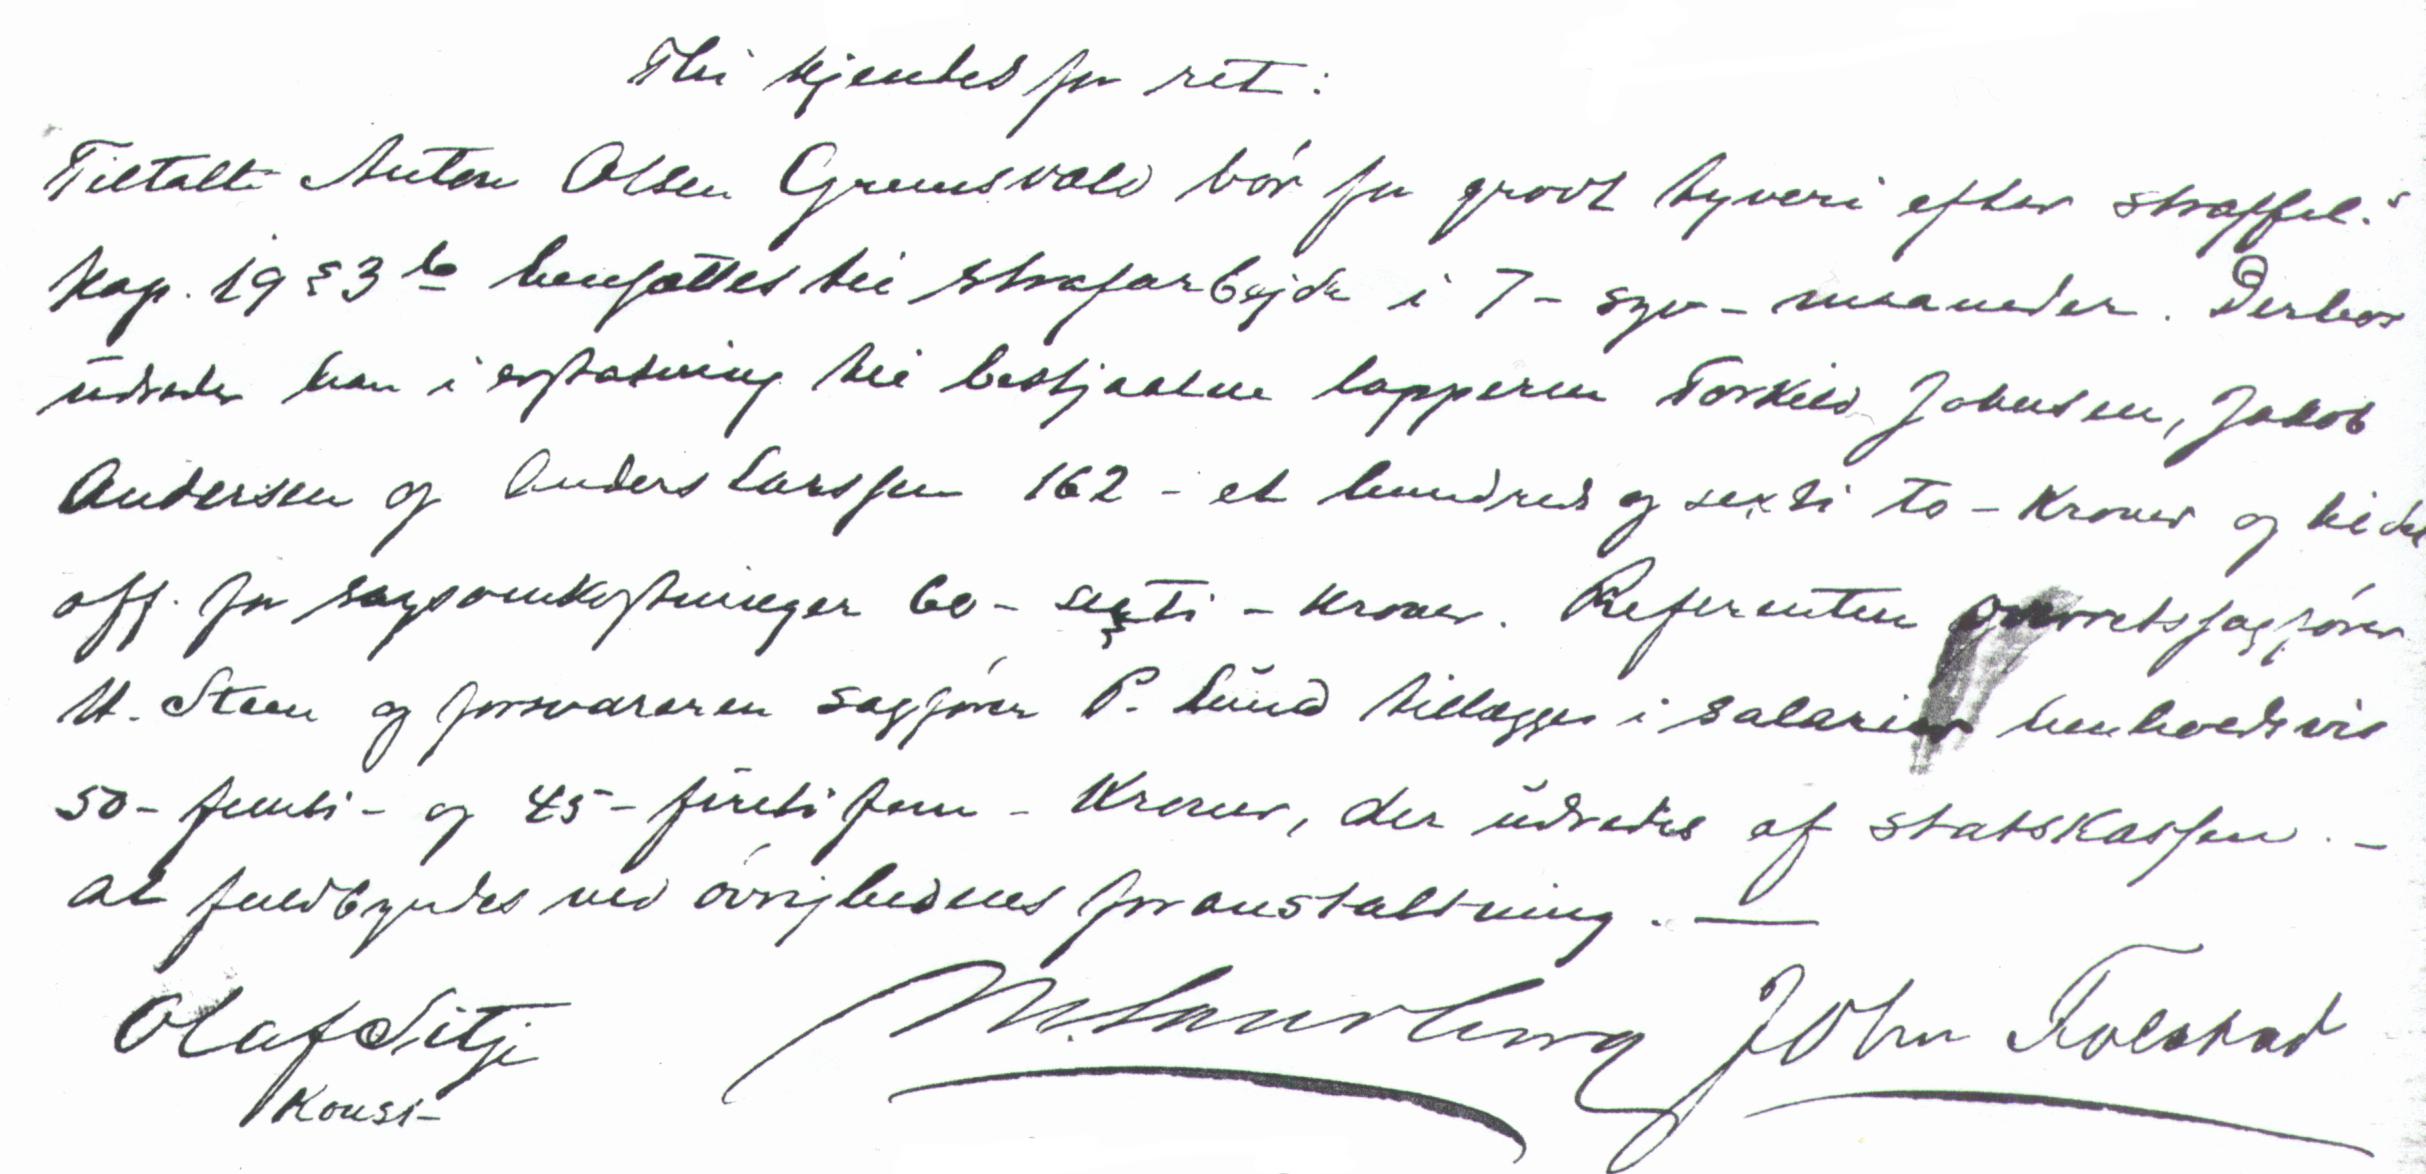 Thi kjendes for ret:
Tiltalte Anton Olsen Grumsvald bör for grovt tyveri efter straffel.s
kap. 19 § 3 b hensættes til strafarbejde i 7 - syv - maaneder. Derhos
udreder han i erstatning til bestjaalne lapperne Torkild Johnsen, Jakob
Andersen og Anders Larssen 162 - et hundred og sexti to - Kroner og til det
off. for sagsomkostninger 60 - sexti - kroner. Referenten overretssagförer
U. Steen og forsvareren sagförer P. Lund tillægges i salarier henholdsvis
50 - femti - og 45 - firti fem - Kroner, der udredes af statskassen. -
At fuldbyrdes ved övrighedens foranstaltning. —
Olaf Sitje John Folstad
Konst-